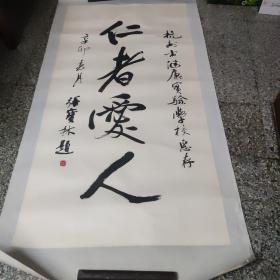 杭州實驗學校惠存
仁者愛人
辛卯春月
寶林題